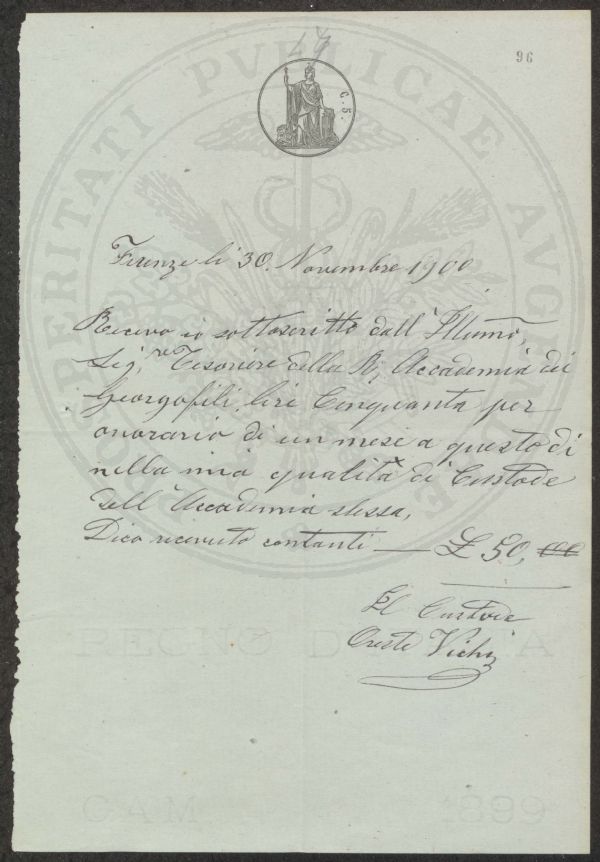 17
96
C. 5.
PROSPERITATI PVBLICAE AVGENDAE
Firenze li 30. Novembre 1900
Ricevo io sottoscritto dall' Illumo,
Sig,re Tesoriere della R, Accademia dei
Georgofili, lire Cinquanta per
onorario di un mese a questo dì
nella mia qualità di Custode
dell' Accademia stessa,
Dico ricevuto contanti — £ 50,
Il Custode
Oreste Vichi
REGNO D'ITALIA
CAM 1899